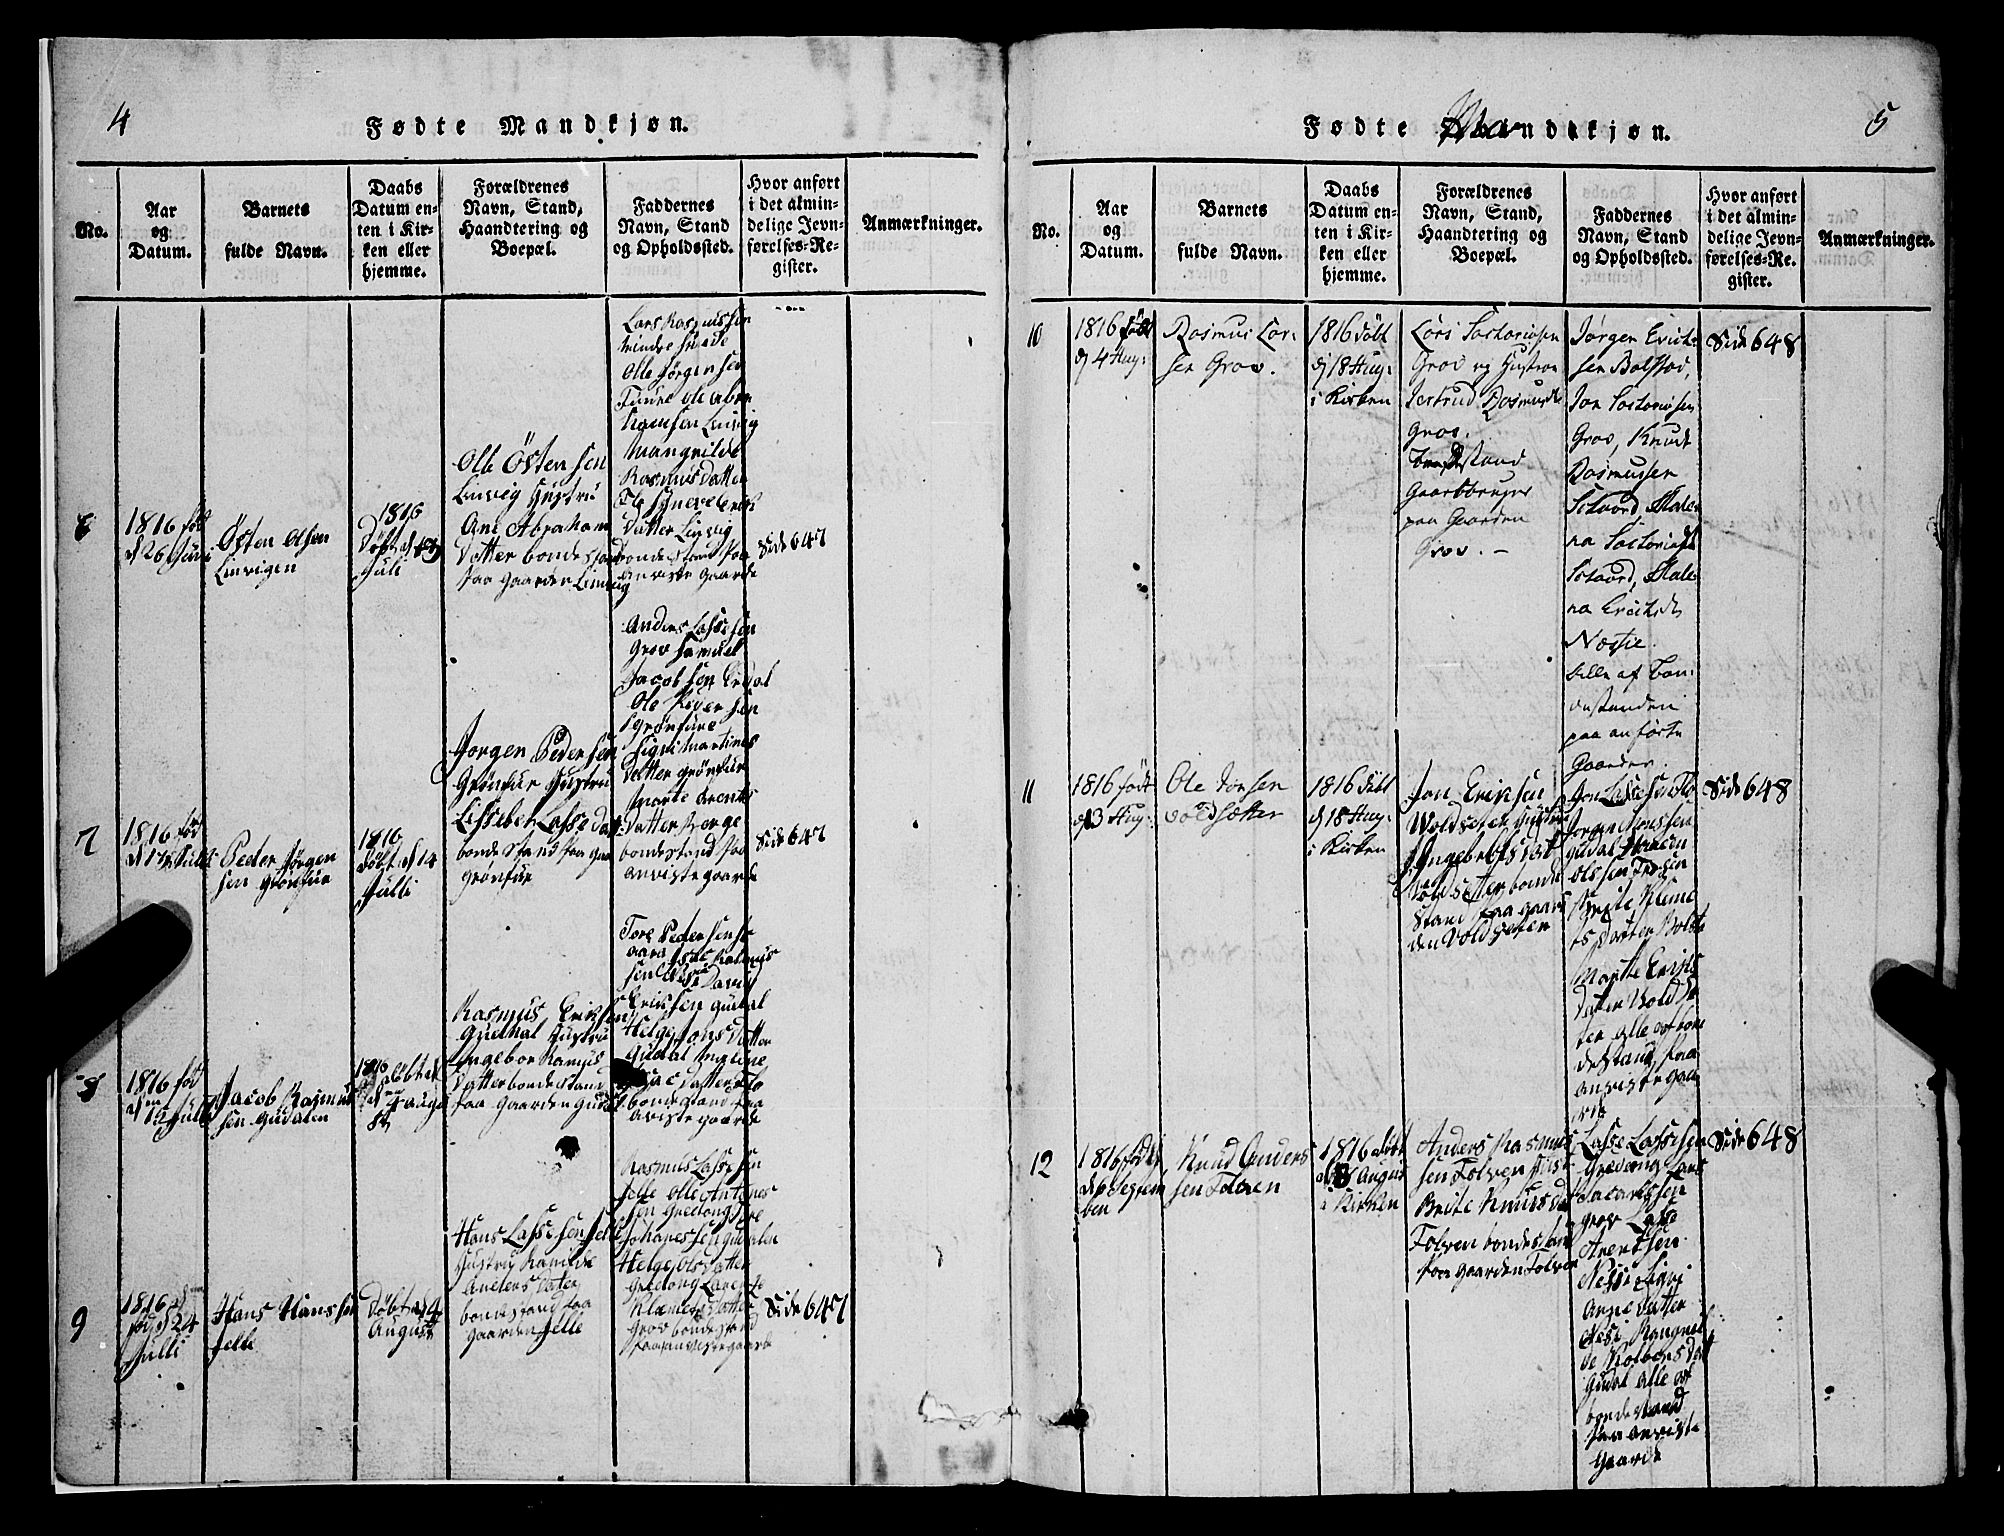 4
Fødte Mandkjøn.
No.
Aar
og
Datum.
Barnets
fulde Navn.
Daabs
Datum en-
ten i Kir-
ken eller
hjemme.
Forældrenes
Navn, Stand,
Haandtering og
Boepæl.
Faddernes
Navn, Stand
og Opholdssted.
Hvor anført
i det almin-
delige Jevn-
førelses-Re-
gister.
Anmærkninger.
6
1816 fød
d 26 Juni
Østen Olsen
Linvigen
1816
Døbt d
Juli
Ole Østensen
Linvig Hustru
Ane Abraham
Datter bonde stand
paa Gaarden Linvig
Lars Rasmussen
Indre
Olle Jørgensen
Fuure Ole Abra
hamsen Linvig
Mangnilde
Rasmus Datter
Flo
Datter Linvig
bonde stand paa
anviste Gaarde
Side 647
7
1816 fød
Peder Jørgen
sen Grønfur
1816
Døbt d 14
Julli
Jørgen Pedersen
Grønfur Hustru
Lissebet Lasse dat
bonde stand paa Gaa
Grønfur
Anders Lassesen
Grov Samuel
Jacobsen
Ole Pedersen
Grønfure
Signi Martines
Datter Grønfur
Marte Arents
Datter Berge
bondestand paa
anviste gaarde
Side 647
8
1816 fød
d 12 Julli
Jacob Rasmus
sen Gudalen
1816 døbt d
4 augu
st
Rasmus Eriksen
Guddal Hustru
Ingebor Rasmus
Datter bonde stand
paa Gaarden Gudal
Tore Pedersen
Rasmus
sen David
Eriksen Gudal
Helge Jons Datter
Gudal
Datter Flo
bondestand paa
anviste gaarde
9
1816
fød d 24
Julli
Hans Hanssen
Felle
Døbt d 4
August
Hans Lassesen Felle
Hustru Ranilde
Anders Dater
bondestand paa
Gaarden Felle
Rasmus Lassesen
Felle Olle Antones
sen Gredong
Johanessen Gudalen
Helge Ols Datter
Gredong
Klemets Datter
Grov bondestand
paa anviste gaarde
Side 647
5
Fødte Mandkjøn.
No.
Aar
og
Datum.
Barnets
fulde Navn.
Daabs
Datum en-
ten i Kir-
ken eller
hjemme.
Forældrenes
Navn, Stand,
Haandtering og
Boepæl.
Faddernes
Navn, Stand
og Opholdssted.
Hvor anført
i det almin-
delige Jevn-
førelses-Re-
gister.
Anmærkninger.
10
1816 født
d 4 Aug:
Rasmus Lar-
sen Grov.
1816 døbt
d 18 Aug:
i Kirken
Lars Sactariasen
Grov og Hustrue
Jertrud Rasmusdr
Grov.
bondestand
Gaardbruger
paa Gaarden
Grov. -
Jørgen Erich-
sen Bolstad,
Jon Sactariasen
Grov, Knud
Rasmussen
Male-
na Sactariasdr
Male-
na Erichsdr
Nessie.
alle af Bon-
destanden
paa anførte
Gaarder.
Side 648
11
1816 født
d 3 Aug:
Ole Jonsen
Voldsætter
1816 døbt
d 18 Aug:
i Kirken
Jon Eriksen
Voldseter Hustru
Ingebor
Voldsetter bonde
stand paa gaar
den Voldseter
Jon Lassesen Flo
Jørgen Monssen
Gudal
Olssen
Brite Kleme
ts Datter Bolst
Marte Eriks
Dater Voldse
ter alle af bon
destand paa
anviste gaar
de
Side 648
12
1816 født
d 6 Septem
ber
Knud Anders
sen Tolven
1816 døbt
d August
i Kirken
Anders Rasmus
sen Tolven Hust
Brite Knuds Da
Tolven bondestand
paa Gaarden Tolven
Lasse Lassesen
Gredong Lars
Sacariassen
Grov Lasse
Arentsen
Nessi Signi
Datter
Nessi Rangnil
de Kolbens Datt
Gudal alle af
bondestand
paa anviste
Gaarde
Side 648